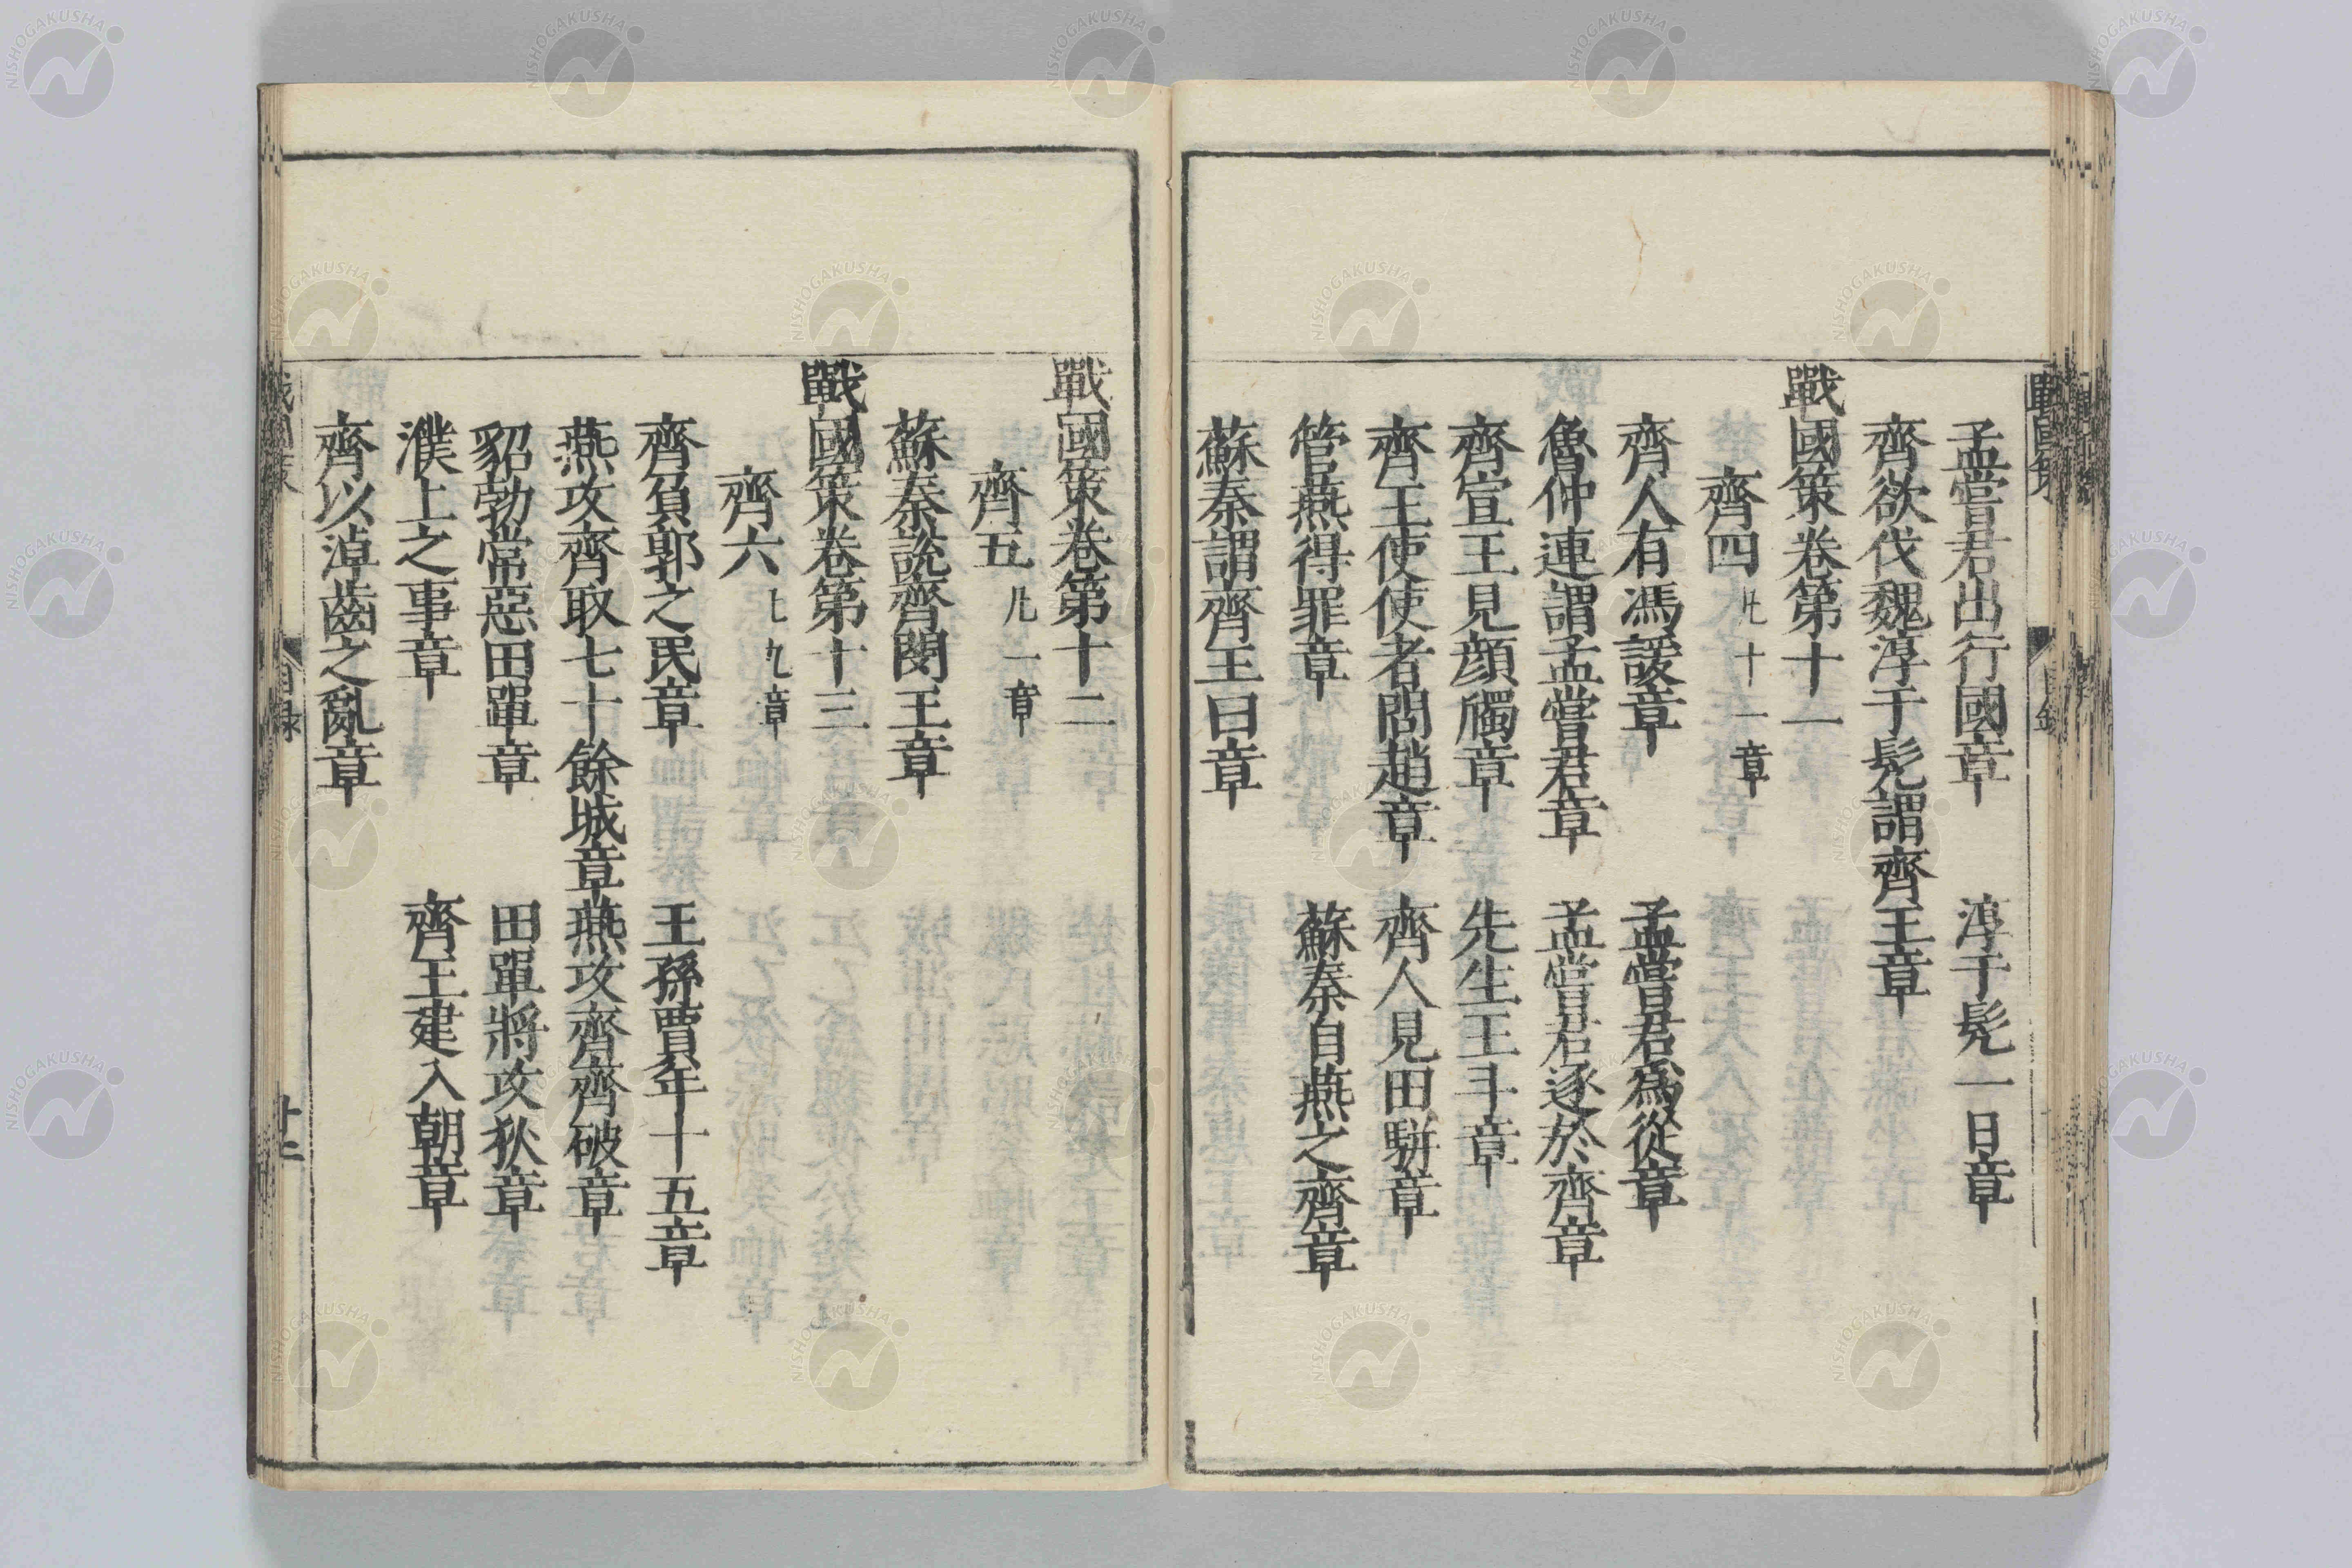 孟嘗君出行國章　淳于髡一日章
齊欲伐魏淳于髡謂齊王章
戰國策卷第十一
齊四 凡十一章
齊人有馮諼章　孟嘗君爲從章
魯仲連謂孟嘗君章　孟嘗君逐於齊章
齊宣王見顏斶章　先生王斗章
齊王使使者問趙章　齊人見田駢章
管燕得罪章　蘇秦自燕之齊章
蘇秦謂齊王曰章
戰國策卷第十二
齊五 凡一章
蘇秦說齊閔王章
戰國策卷第十三
齊六 凡九章
齊負郭之民章　王孫賈年十五章
燕攻齊取七十餘城章　燕攻齊齊破章
貂勃常惡田單章　田單將攻狄章
濮上之事章　齊王建入朝章
齊以淖齒之亂章
戰國策　目録　十二
NISHOGAKUSHA